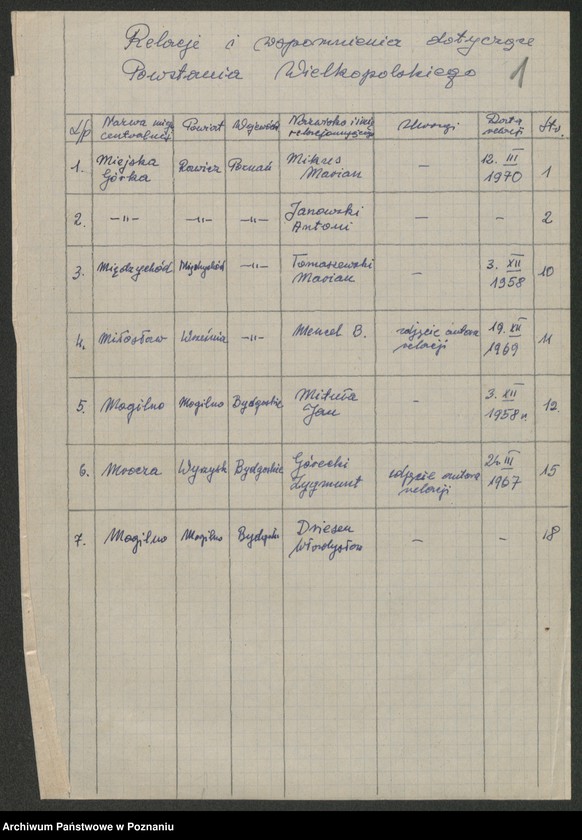 Relacje i wspomnienia dotyczące
Powstania Wielkopolskiego 1
L/p Nazwa miej. centralnej Powiat Wojewód. Nazwisko i imię relacjonującego Uwagi Data relacji Str.
1. Miejska Górka Rawicz Poznań Mikses Marian — 12. III 1970 1
2. —"— —"— —"— Janowski Antoni — — 2
3. Międzychód Międzychód —"— Tomaszewski Marian — 3. XII 1958 10
4. Miłosław Września —"— Menzel B. zdjęcie autora relacji 19. XII 1969 11
5. Mogilno Mogilno Bydgoskie Mituła Jan — 3. XII 1958 r. 12
6. Mrocza Wyrzysk Bydgoskie Górecki Zygmunt zdjęcie autora relacji 24. III 1967 15
7. Mogilno Mogilno Bydgoskie Driesen Władysław — — 18
Archiwum Państwowe w Poznaniu